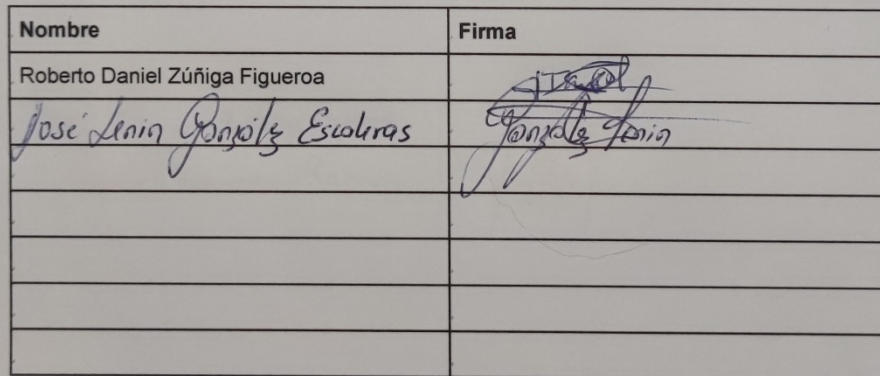 Nombre Firma
Roberto Daniel Zúñiga Figueroa
José Lenin González Escoleras González Lenin